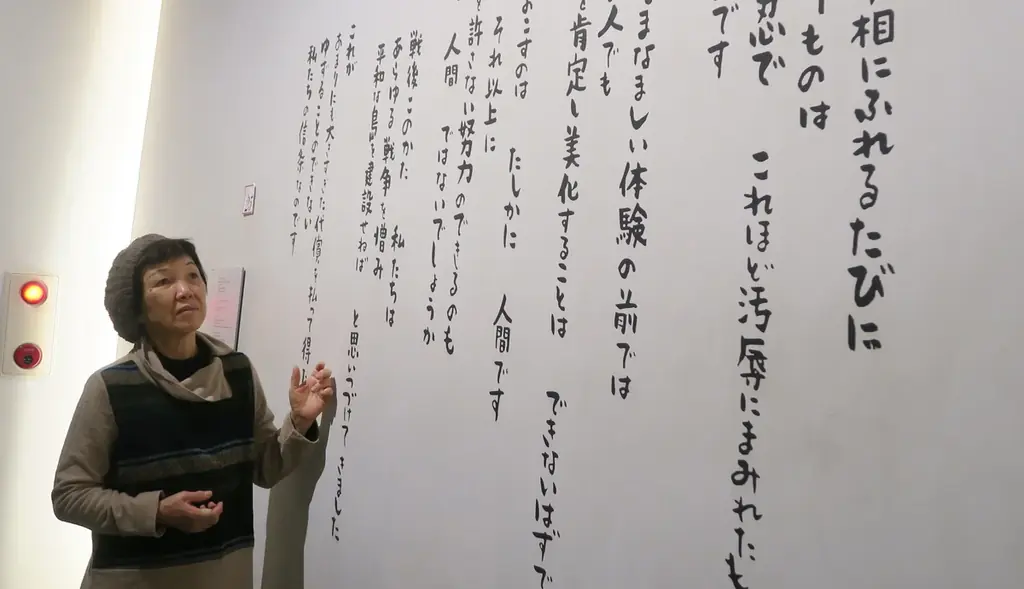 相にふれるたびに
ものは
忍で これほど汚辱にまみれたも
です
まなましい体験の前では
人でも
を肯定し美化することは できないはずで
おこすのは たしかに 人間です
それ以上に
を許さない努力のできるのも
人間 ではないでしょうか
戦後このかた 私たちは
あらゆる戦争を憎み
平和な島を建設せねば と思いつづけて きました
これが
あまりにも大きすぎた代償を払って得
ゆずることのできない
私たちの信条なのです